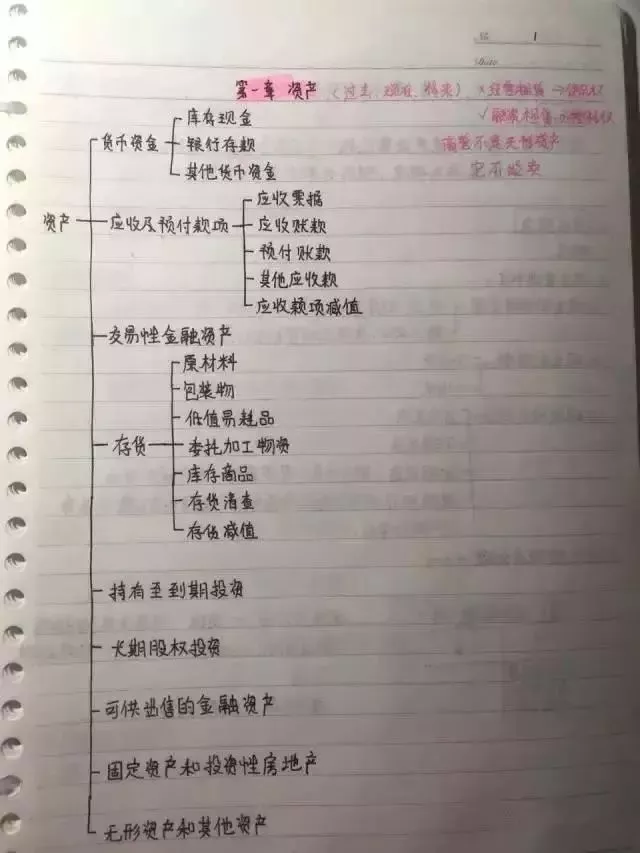 No. 1
Date
第一章 资产 (过去、现在、将来) ×经营租赁→使用权
√融资租赁
库存现金
货币资金 银行存款 商誉不是无形资产
其他货币资金
应收票据
资产 应收及预付款项 应收账款
预付账款
其他应收款
应收款项减值
交易性金融资产
原材料
包装物
低值易耗品
存货 委托加工物资
库存商品
存货清查
存货减值
持有至到期投资
长期股权投资
可供出售的金融资产
固定资产和投资性房地产
无形资产和其他资产